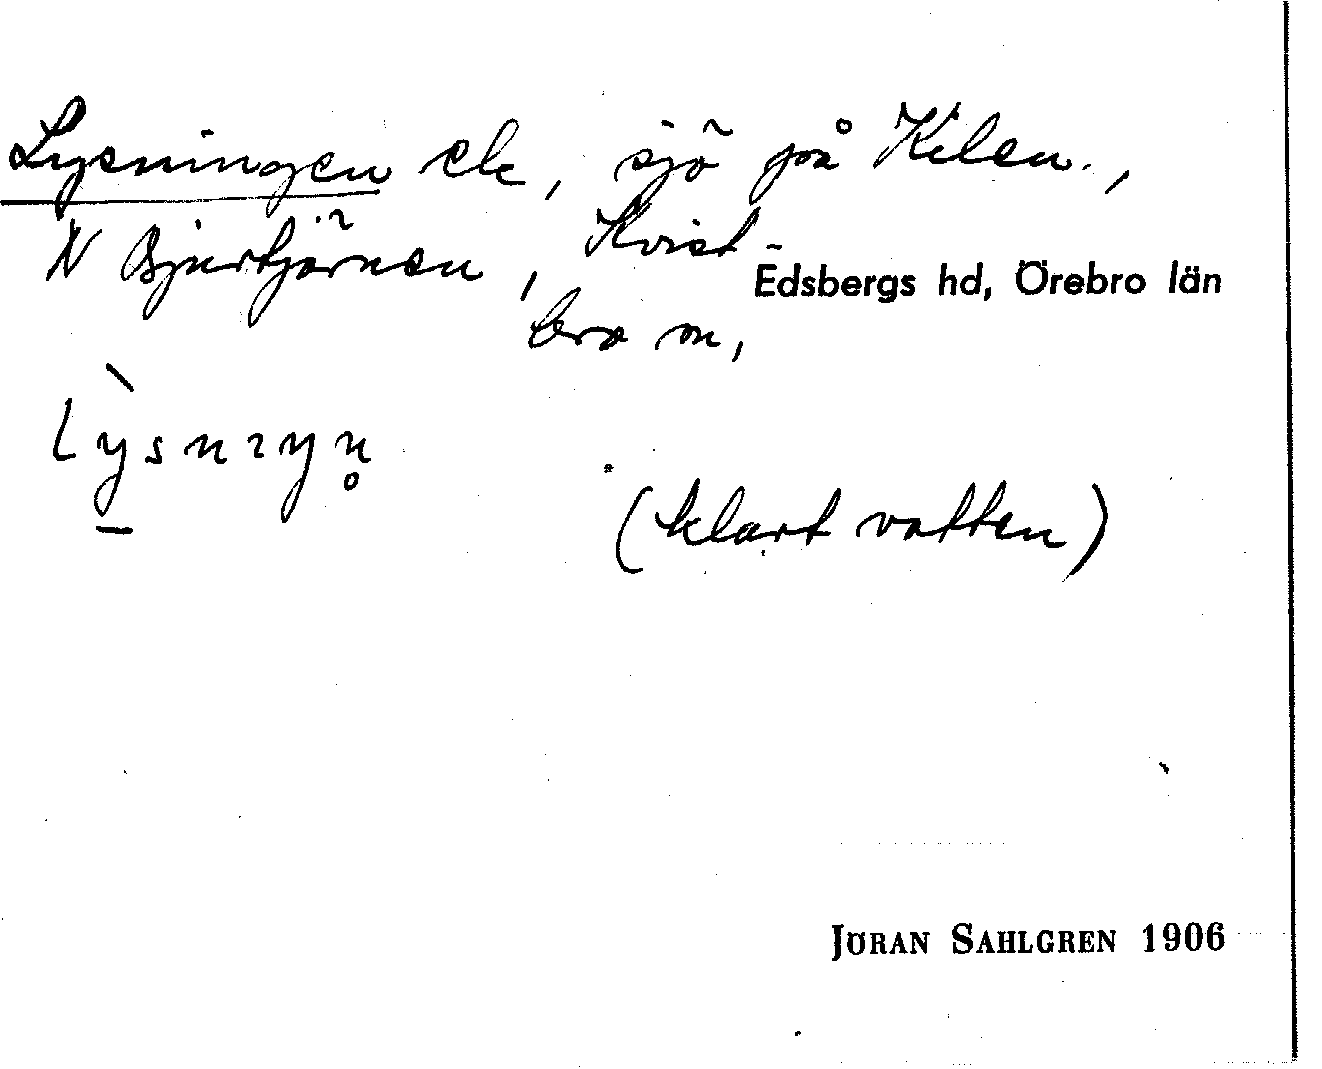 Lysningen ele, sjö på Kilen.,
N Bjurtjärnen, Kvist-
bro sn,
Edsbergs hd, Örebro län
(klart vatten)
JÖRAN SAHLGREN 1906